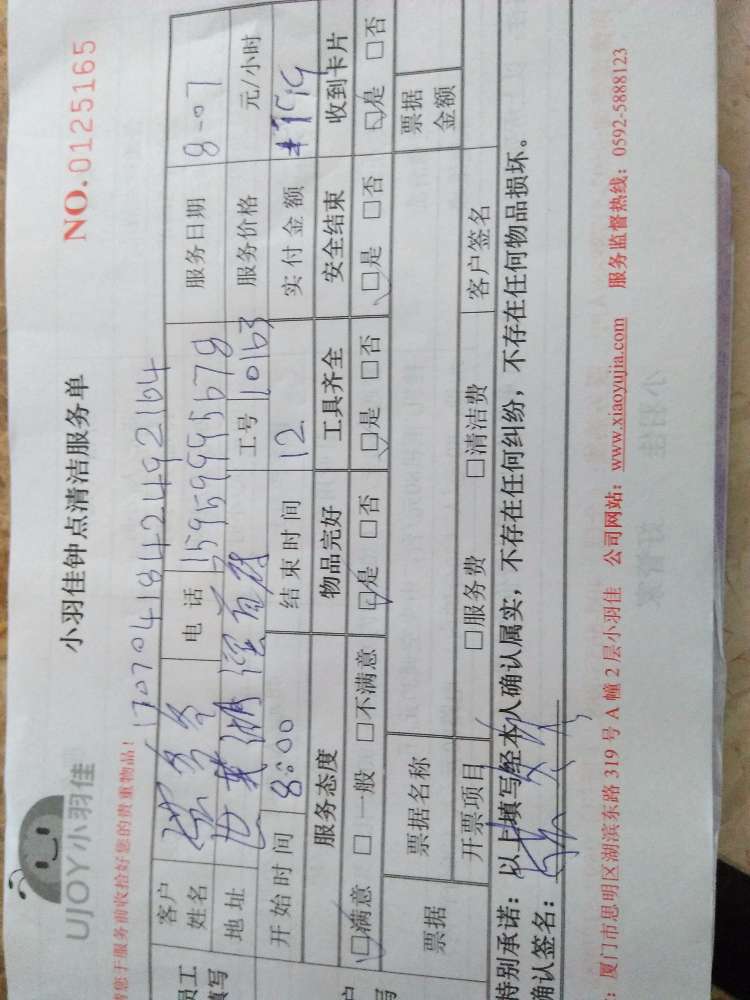 UJOY小羽佳
小羽佳钟点清洁服务单
NO.0125165
请您于服务前收拾好您的贵重物品!
170704184242492164
客户姓名
电话 15959995678
服务日期 8-07
地址
工号 10163
服务价格 元/小时
开始时间 8:00
结束时间 12
实付金额
服务态度 物品完好 工具齐全 安全结束 收到卡片
☑满意 □一般 □不满意 ☑是 □否 ☑是 □否 ☑是 □否 ☑是 □否
票据
票据名称
票据金额
开票项目 □服务费 □清洁费 客户签名
特别承诺:以上填写经本人确认属实,不存在任何纠纷,不存在任何物品损坏。
确认签名:
厦门市思明区湖滨东路319号A幢2层小羽佳 公司网站:www.xiaoyujia.com 服务监督热线:0592-5888123